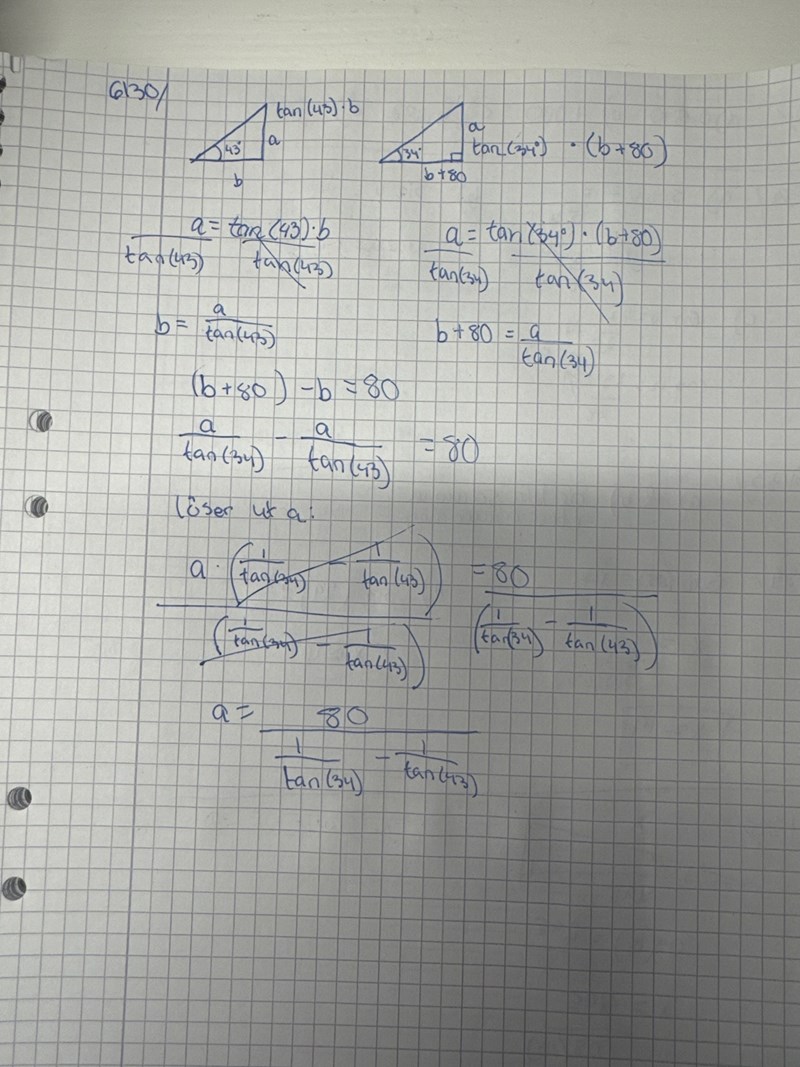 6130/
tan(43)·b
43°
a
b
34°
a
tan(34°) · (b+80)
b+80
a = tan(43)·b
tan(43) tan(43)
a = tan(34°)·(b+80)
tan(34) tan(34)
b = a/tan(43)
b+80 = a/tan(34)
(b+80) - b = 80
a/tan(34) - a/tan(43) = 80
Löser ut a:
a · (1/tan(34) - 1/tan(43)) = 80
(1/tan(34) - 1/tan(43)) (1/tan(34) - 1/tan(43))
a = 80
1/tan(34) - 1/tan(43)